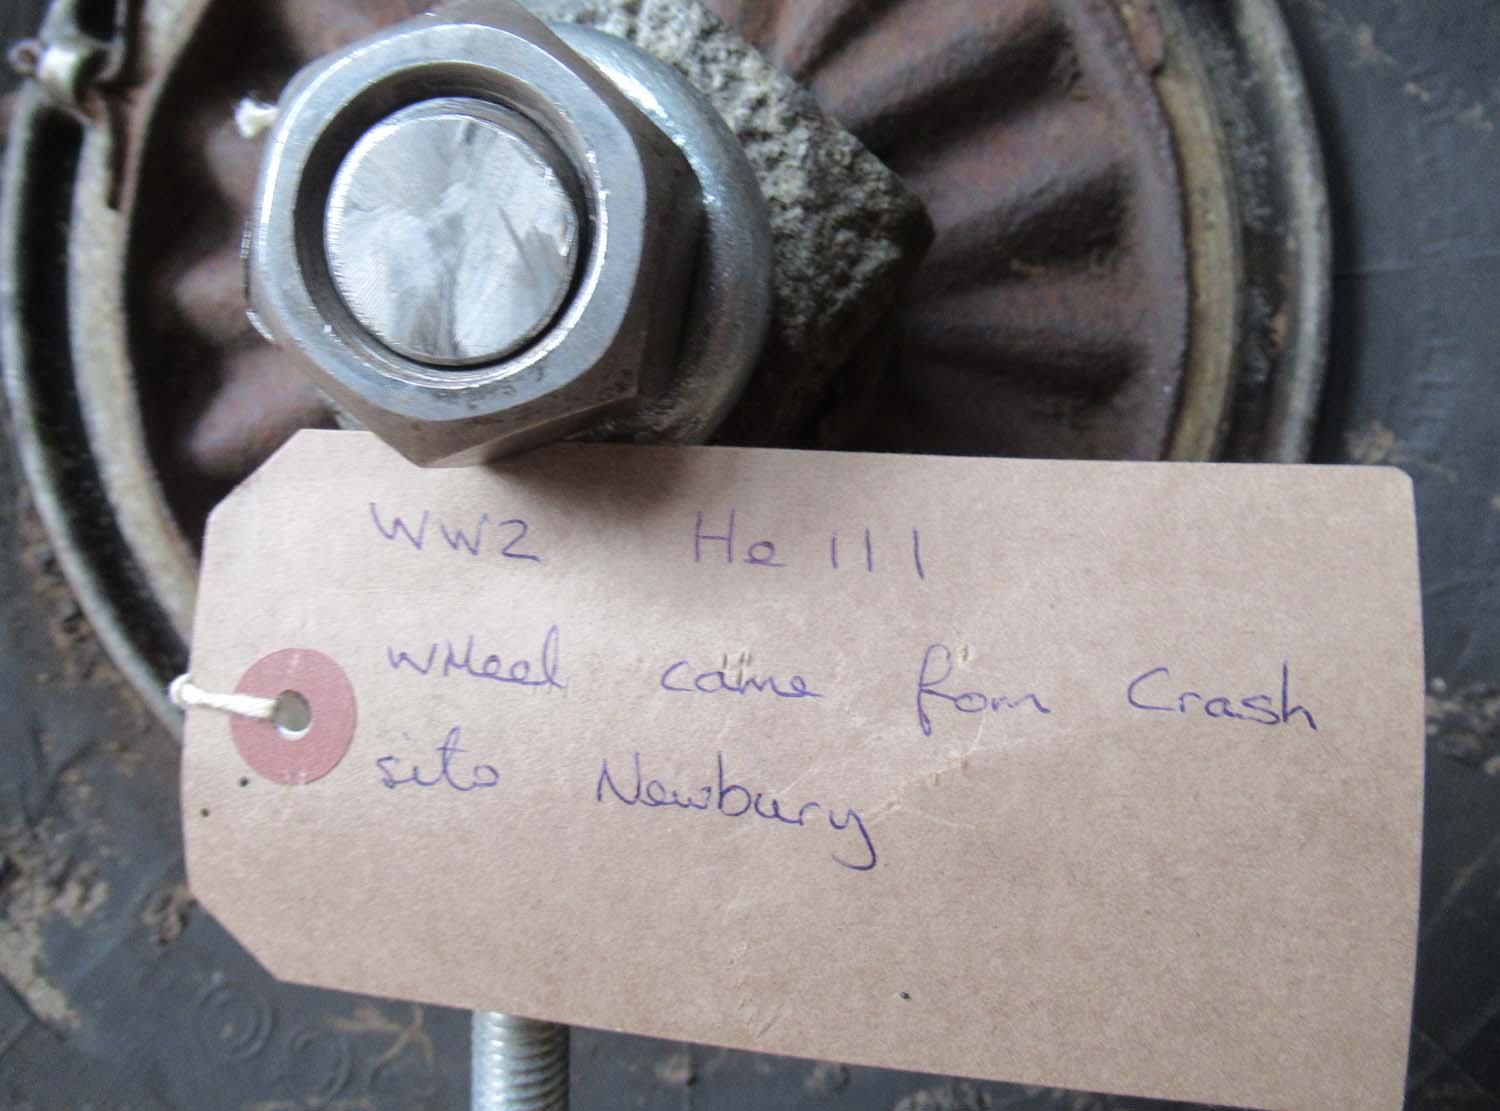 WW2 He 111
wHeel came from Crash
site Newbury